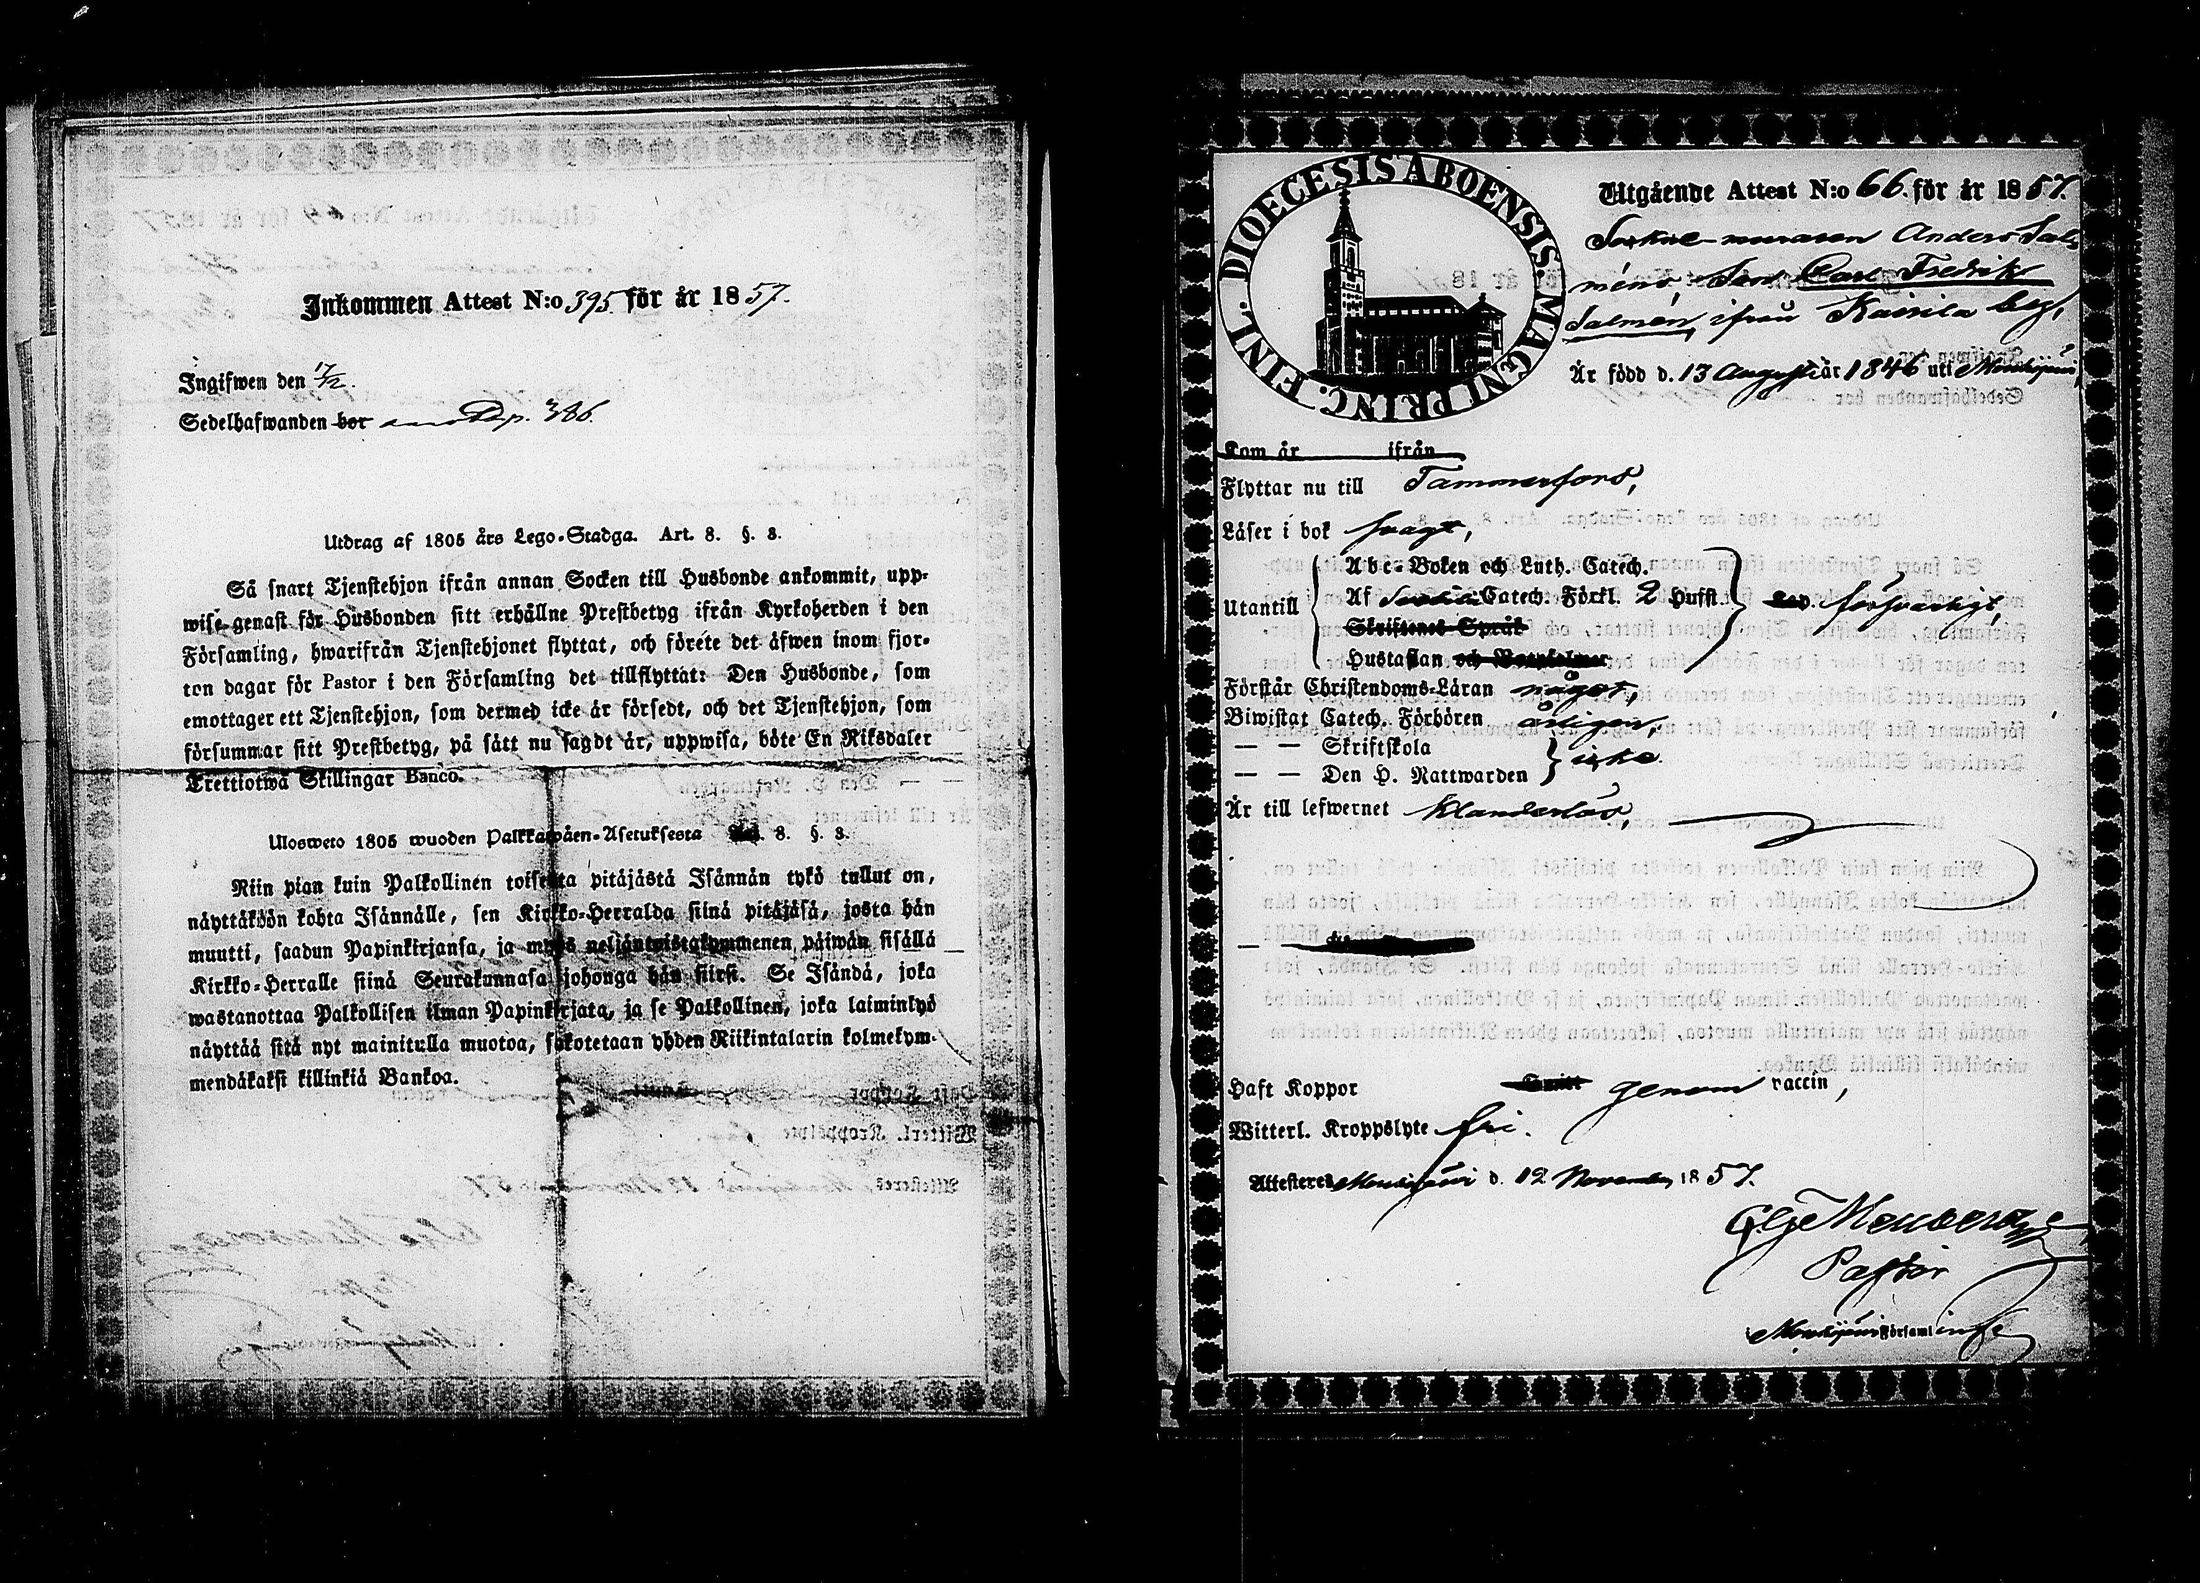 Inkommen Attest N:o 395. för år 1857.
Ingifwen den 1/12.
Sedelhafwanden bor pag. 386.
Utdrag af 1805 års Lego-Stadga. Art. 8. §. 3.
Så snart Tjenstehjon ifrån annan Socken till Husbonde ankommit, upp-
wise genast för Husbonden sitt erhållne Prestbetyg ifrån Kyrkoherden i den
Församling, hwarifrån Tjenstehjonet flyttat, och förete det äfwen inom fjor-
ton dagar för Pastor i den Församling det tillflyttat: Den Husbonde, som
emottager ett Tjenstehjon, som dermed icke är försedt, och det Tjenstehjon, som
försummar sitt Prestbetyg, på sätt nu sagdt är, uppwisa, böte En Riksdaler
Trettiotwå Skillingar Banco.
Ulosweto 1805 wuoden Palkkawäen-Asetuksesta Art. 8. §. 3.
Niin pian kuin Palkollinen toisesta pitäjästä Isännän tykö tullut on,
näyttäköön kohta Isännälle, sen Kirkko-Herralda siinä pitäjäsä, josta hän
muutti, saadun Papinkirjansa, ja myös neljäntoistakymmenen päiwän sisällä
Kirkko-Herralle siinä Seurakunnasa johonga hän siirsi. Se Isändä, joka
wastanottaa Palkollisen ilman Papinkirjata, ja se Palkollinen, joka laiminlyö
näyttää sitä nyt mainitulla muotoa, sakotetaan yhden Riikintalarin kolmekym-
mendäkaksi killinkiä Bankoa.
DIOECESIS ABOENSIS. MAGNI PRINC. FINL.
Utgående Attest N:o 66. för år 1857.
Sockne-muraren Anders Sal-
méns, Son Carl Fredrik
Salmén, ifrån Kaisila
Är född d. 13 Augusti år 1846 uti Mouhijärvi,
Kom år ifrån
Flyttar nu till Tammerfors,
Läser i bok svagt,
Abc-Boken och Luth. Catech.
Utantill Af Catech. Förkl. 2 Hufst. försvarligt,
Skriftenes Språk
Hustaflan och Botpsalmer
Förstår Christendoms-Läran något,
Biwistat Catech. Förhören årligen,
— — Skriftskola
— — Den H. Nattwarden icke.
Är till lefwernet klanderlös,
Haft Koppor genom vaccin,
Witterl. Kroppslyte fri.
Attesteres Mouhijärvi d. 12 November 1857.
Pastor
Mouhijärvi Församling